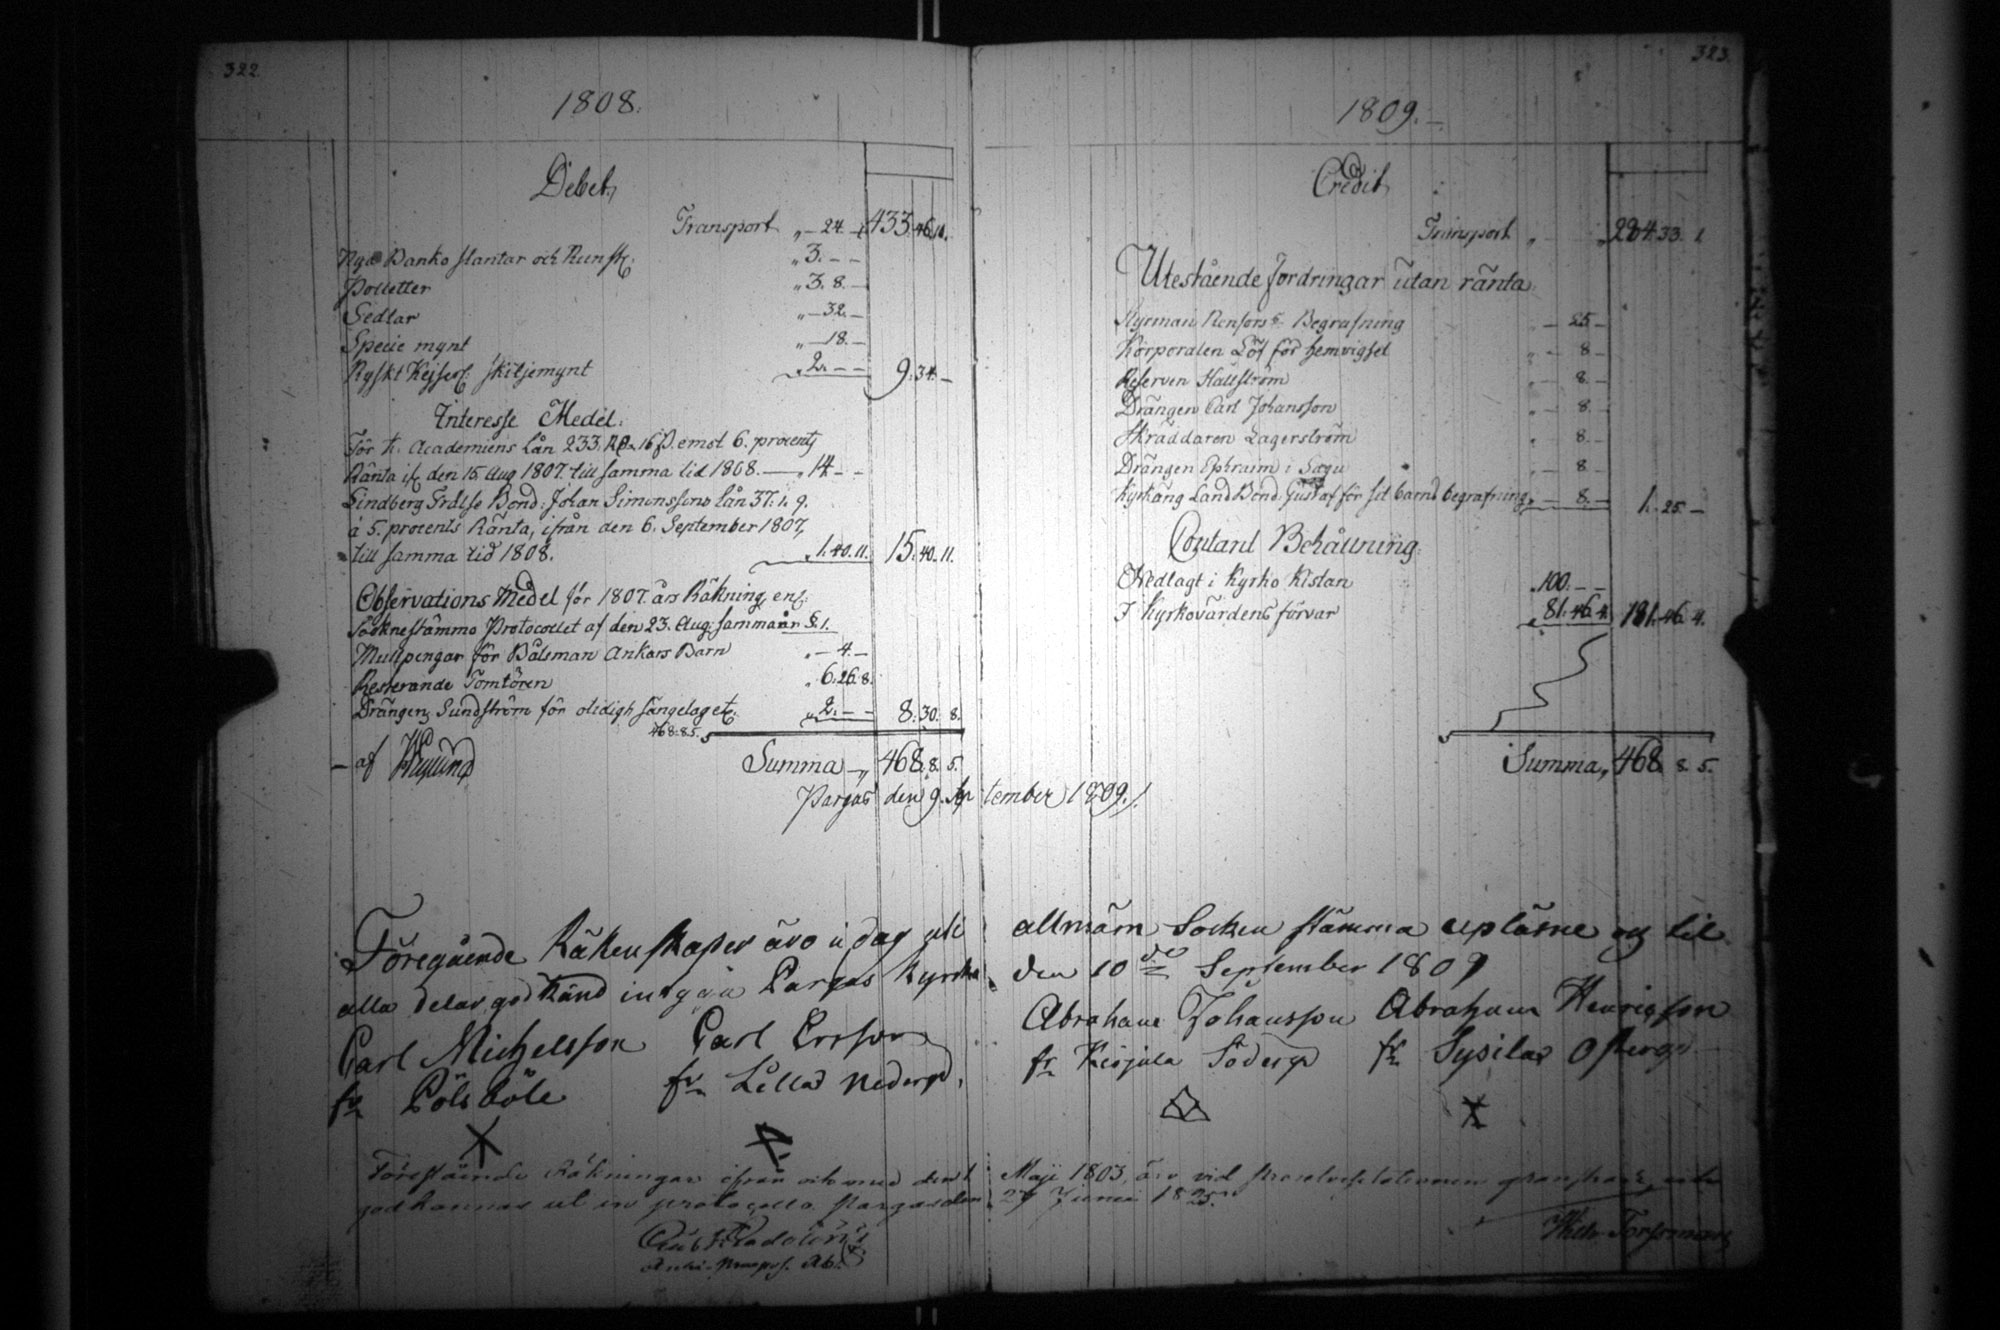 322.
1808.
Debet,
Transport " — 24. — 433. 46. 11.
Nya Banko slantar och Runst: " 3. — —
Polletter " 3. 8. —
Sedlar " — 32. —
Specie mynt " — 18. —
Ryskt Kejserl: skiljemynt " 2. — — 9. 34. —
Interesse Medel:
För K. Academiens Lån 233. Rd 16 ß. emot 6. procents
Ränta if. den 15. Aug 1807. till samma tid 1808. — " 14 — —
Lindberg Frälse Bond: Johan Simonssons Lån 37. 1. 9.
à 5. procents Ränta, ifrån den 6. September 1807,
till samma tid 1808. " 1. 40. 11. 15. 40. 11.
Observations Medel för 1807. års Räkning, enl:
Soknestämmo Protocollet af den 23. Aug: samma år " 8. 1.
Mullpengar för Båtsman Ankars Barn " — 4. —
Resterande Tomtören " 6. 26. 8.
Drängen Sundström för otidigt sängelaget: " 2. — — 8. 30. 8.
468. 8. 5.
— af Summa — " 468. 8. 5.
Pargas den 9. September 1809.
323.
1809. —
Credit
Transport " — " 284. 33. 1.
Utestående fordringar utan ränta.
Styrman Renfors s: Begrafning " — 25 —
Korporalen Löf för hemvigsel " — 8. —
Reserven Hallström " — 8. —
Drängen Carl Johansson " — 8. —
Skräddaren Lagerström " — 8. —
Drängen Ephraim i " — 8. —
Kyrkäng Land Bond: Gustaf för sit barns begrafning " — 8. — 1. 25. —
Contant Behållning.
Nedlagt i Kyrko Kistan " 100. — —
I Kyrkovärdens förvar " 81. 46. 4. 181. 46. 4.
Summa " 468. 8. 5.
Föregående Räkenskaper äro i dag uti allmän Socken stämma upläsne og til
alla delar god känd intyga Pargas Kyrka den 10de September 1809
Carl Michelsson Carl Ersson Abraham Johansson Abraham Henricsson
fr Pölsböle fr Lilla Nederg. fr Kirjala Söderg fr Sysilax Österg.
X
X
Förestående Räkningar ifrån och med den 1 Maji 1803, äro vid
godkännas ut in protocollo. Pargas den 27 Junii 1825.